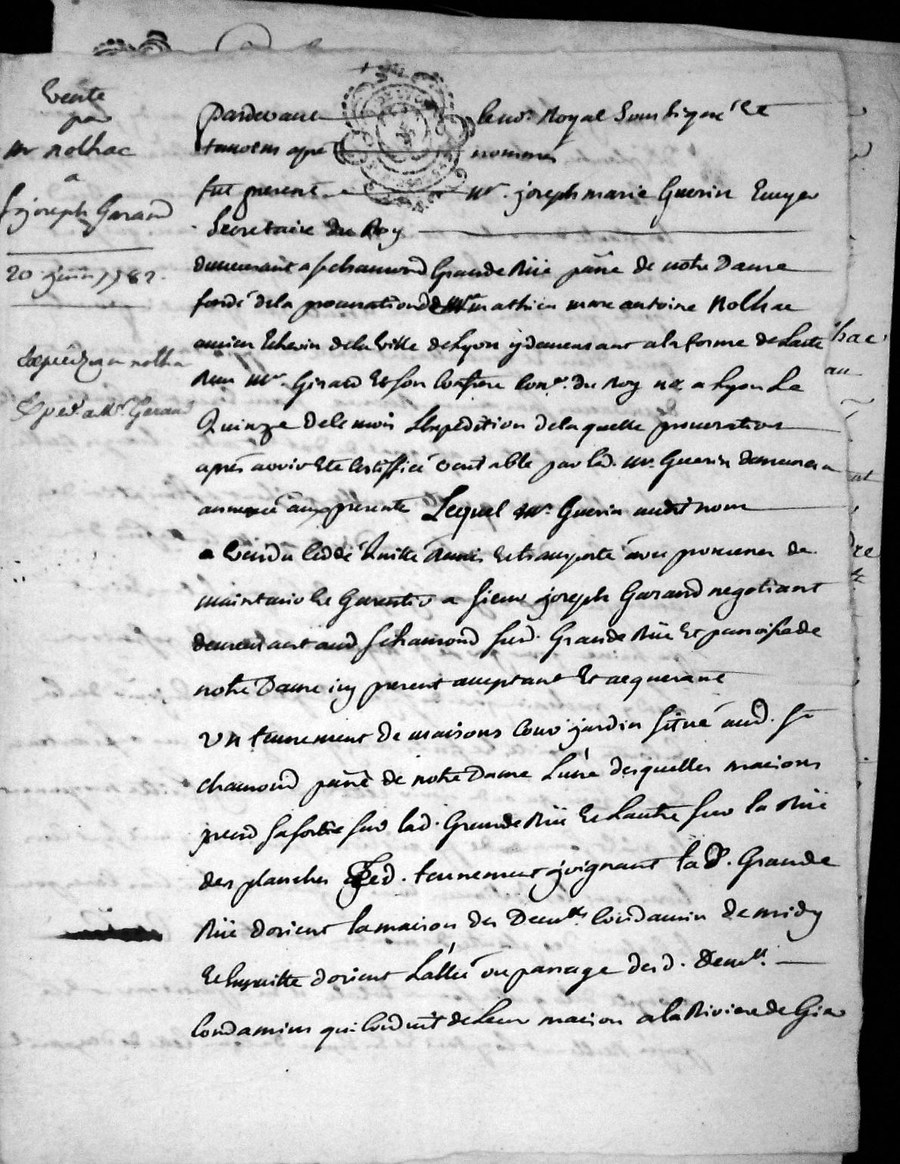 Vente
par
mr nolhac
a
sr joseph Garand
20 juin 1782.
Expediée a mr nolha
Exped. a Mr. Garand
pardevant le no.re Royal Soussigné Et
temoins apre nommés
fut present mr. joseph marie Guerin Ecuyer
Secretaire du Roy
demeurant a st chamond Grande Rüe parsse de notre Dame
fondé de la procuration de mr mathieu marc antoine Nolhac
ancien Echevin de la Ville de Lyon y demeurant a la forme de Lacte
Recu Mr. Girard Et Son Confrere Con.er du Roy no.re a Lyon Le
Quinze de ce mois LExpedition de laquelle procuration
après avoir Eté Certiffiée veritable par led. mr. Guerin demeurera
annexée aux presente Lequel mr. Guerin audit nom
a Vendu Cedé Quitté Remis Et transporté avec promesse de
maintenir Et Garentir a Sieur joseph Garand negotiant
demeurant aud St chamond Sud. Grande Rüe Et parroisse de
notre Dame icy present acceptant Et acquerant
un tennement de maisons Cour jardin Situé aud. St
chamond parsse de notre Dame L'une desquelles maisons
prend Sa Sortie Sur lad. Grande Rüe Et Lautre Sur la Rüe
des planches Led. tennement joignant la d. Grande
Rüe dorient la maison des Demlles Condamin de midy
Et Ensuitte dorient L'allée ou passage desd. Demlles
Condamin qui Conduit de Leur maison a la Riviere de Gier